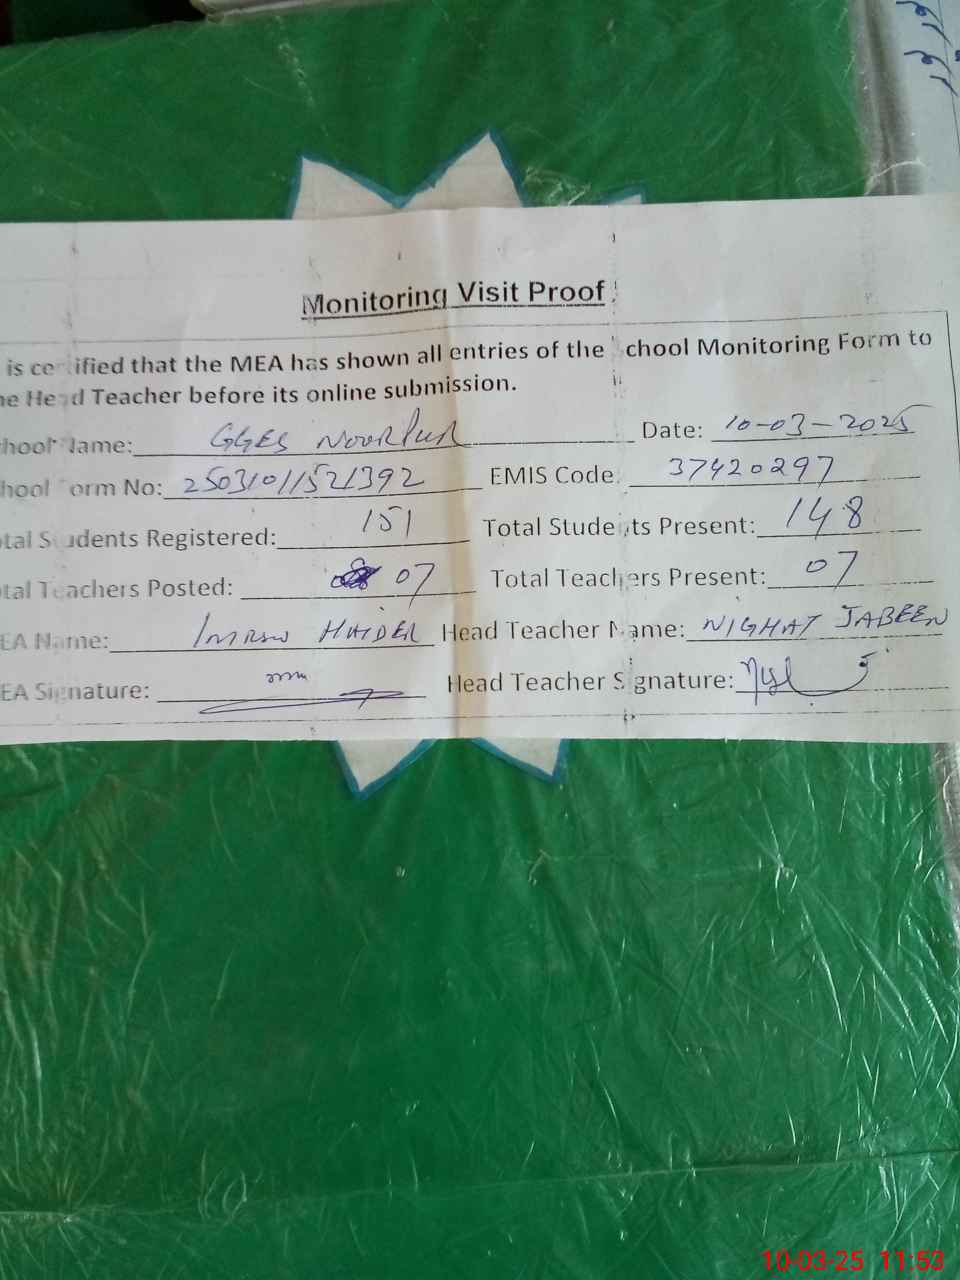 Monitoring Visit Proof
is certified that the MEA has shown all entries of the School Monitoring Form to
he Head Teacher before its online submission.
hool Name: GGES NOORPUR Date: 10-03-2025
hool Form No: 25031011521392 EMIS Code: 37420297
tal Students Registered: 151 Total Students Present: 148
tal Teachers Posted: 07 Total Teachers Present: 07
EA Name: IMRAN HAIDER Head Teacher Name: NIGHAT JABEEN
EA Signature: Head Teacher Signature:
10-03-25 11:53